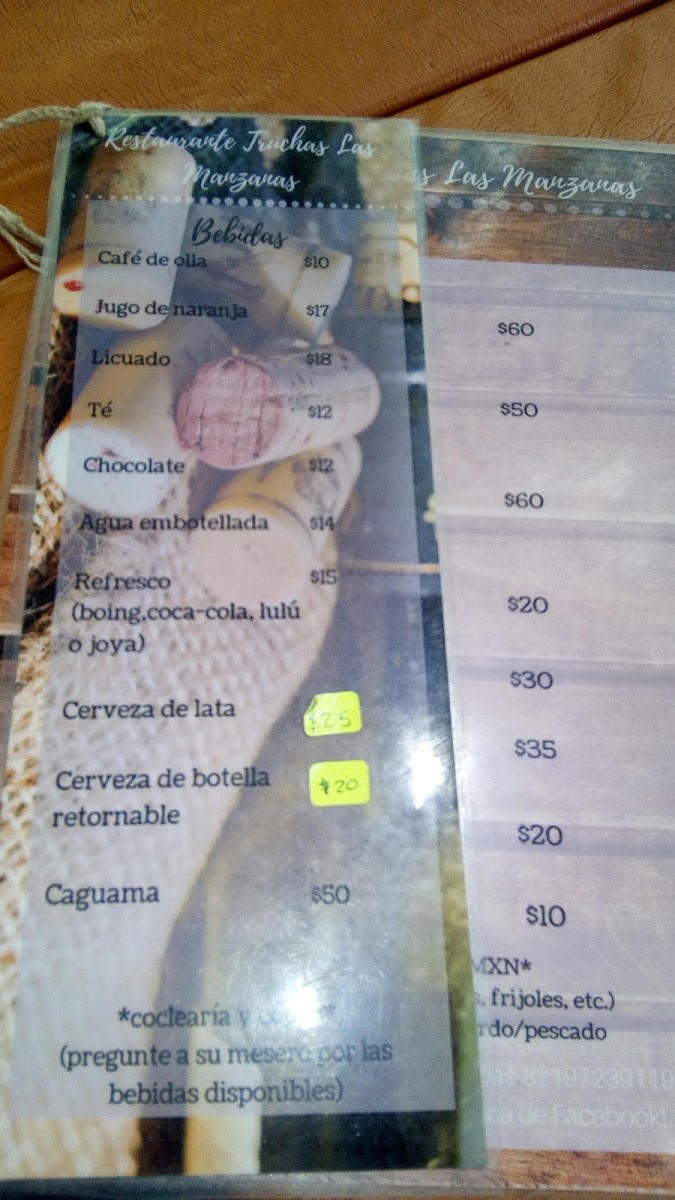 Restaurante Truchas Las
Manzanas
Bebidas
Café de olla $10
Jugo de naranja $17
Licuado $18
Té $12
Chocolate $12
Agua embotellada $14
Refresco $15
(boing,coca-cola, lulú
o joya)
Cerveza de lata $25
Cerveza de botella $20
retornable
Caguama $50
*coclearía y
(pregunte a su mesero por las
bebidas disponibles)
Las Manzanas
$60
$50
$60
$20
$30
$35
$20
$10
MXN*
frijoles, etc.)
rdo/pescado
82197239119
de Facebook!